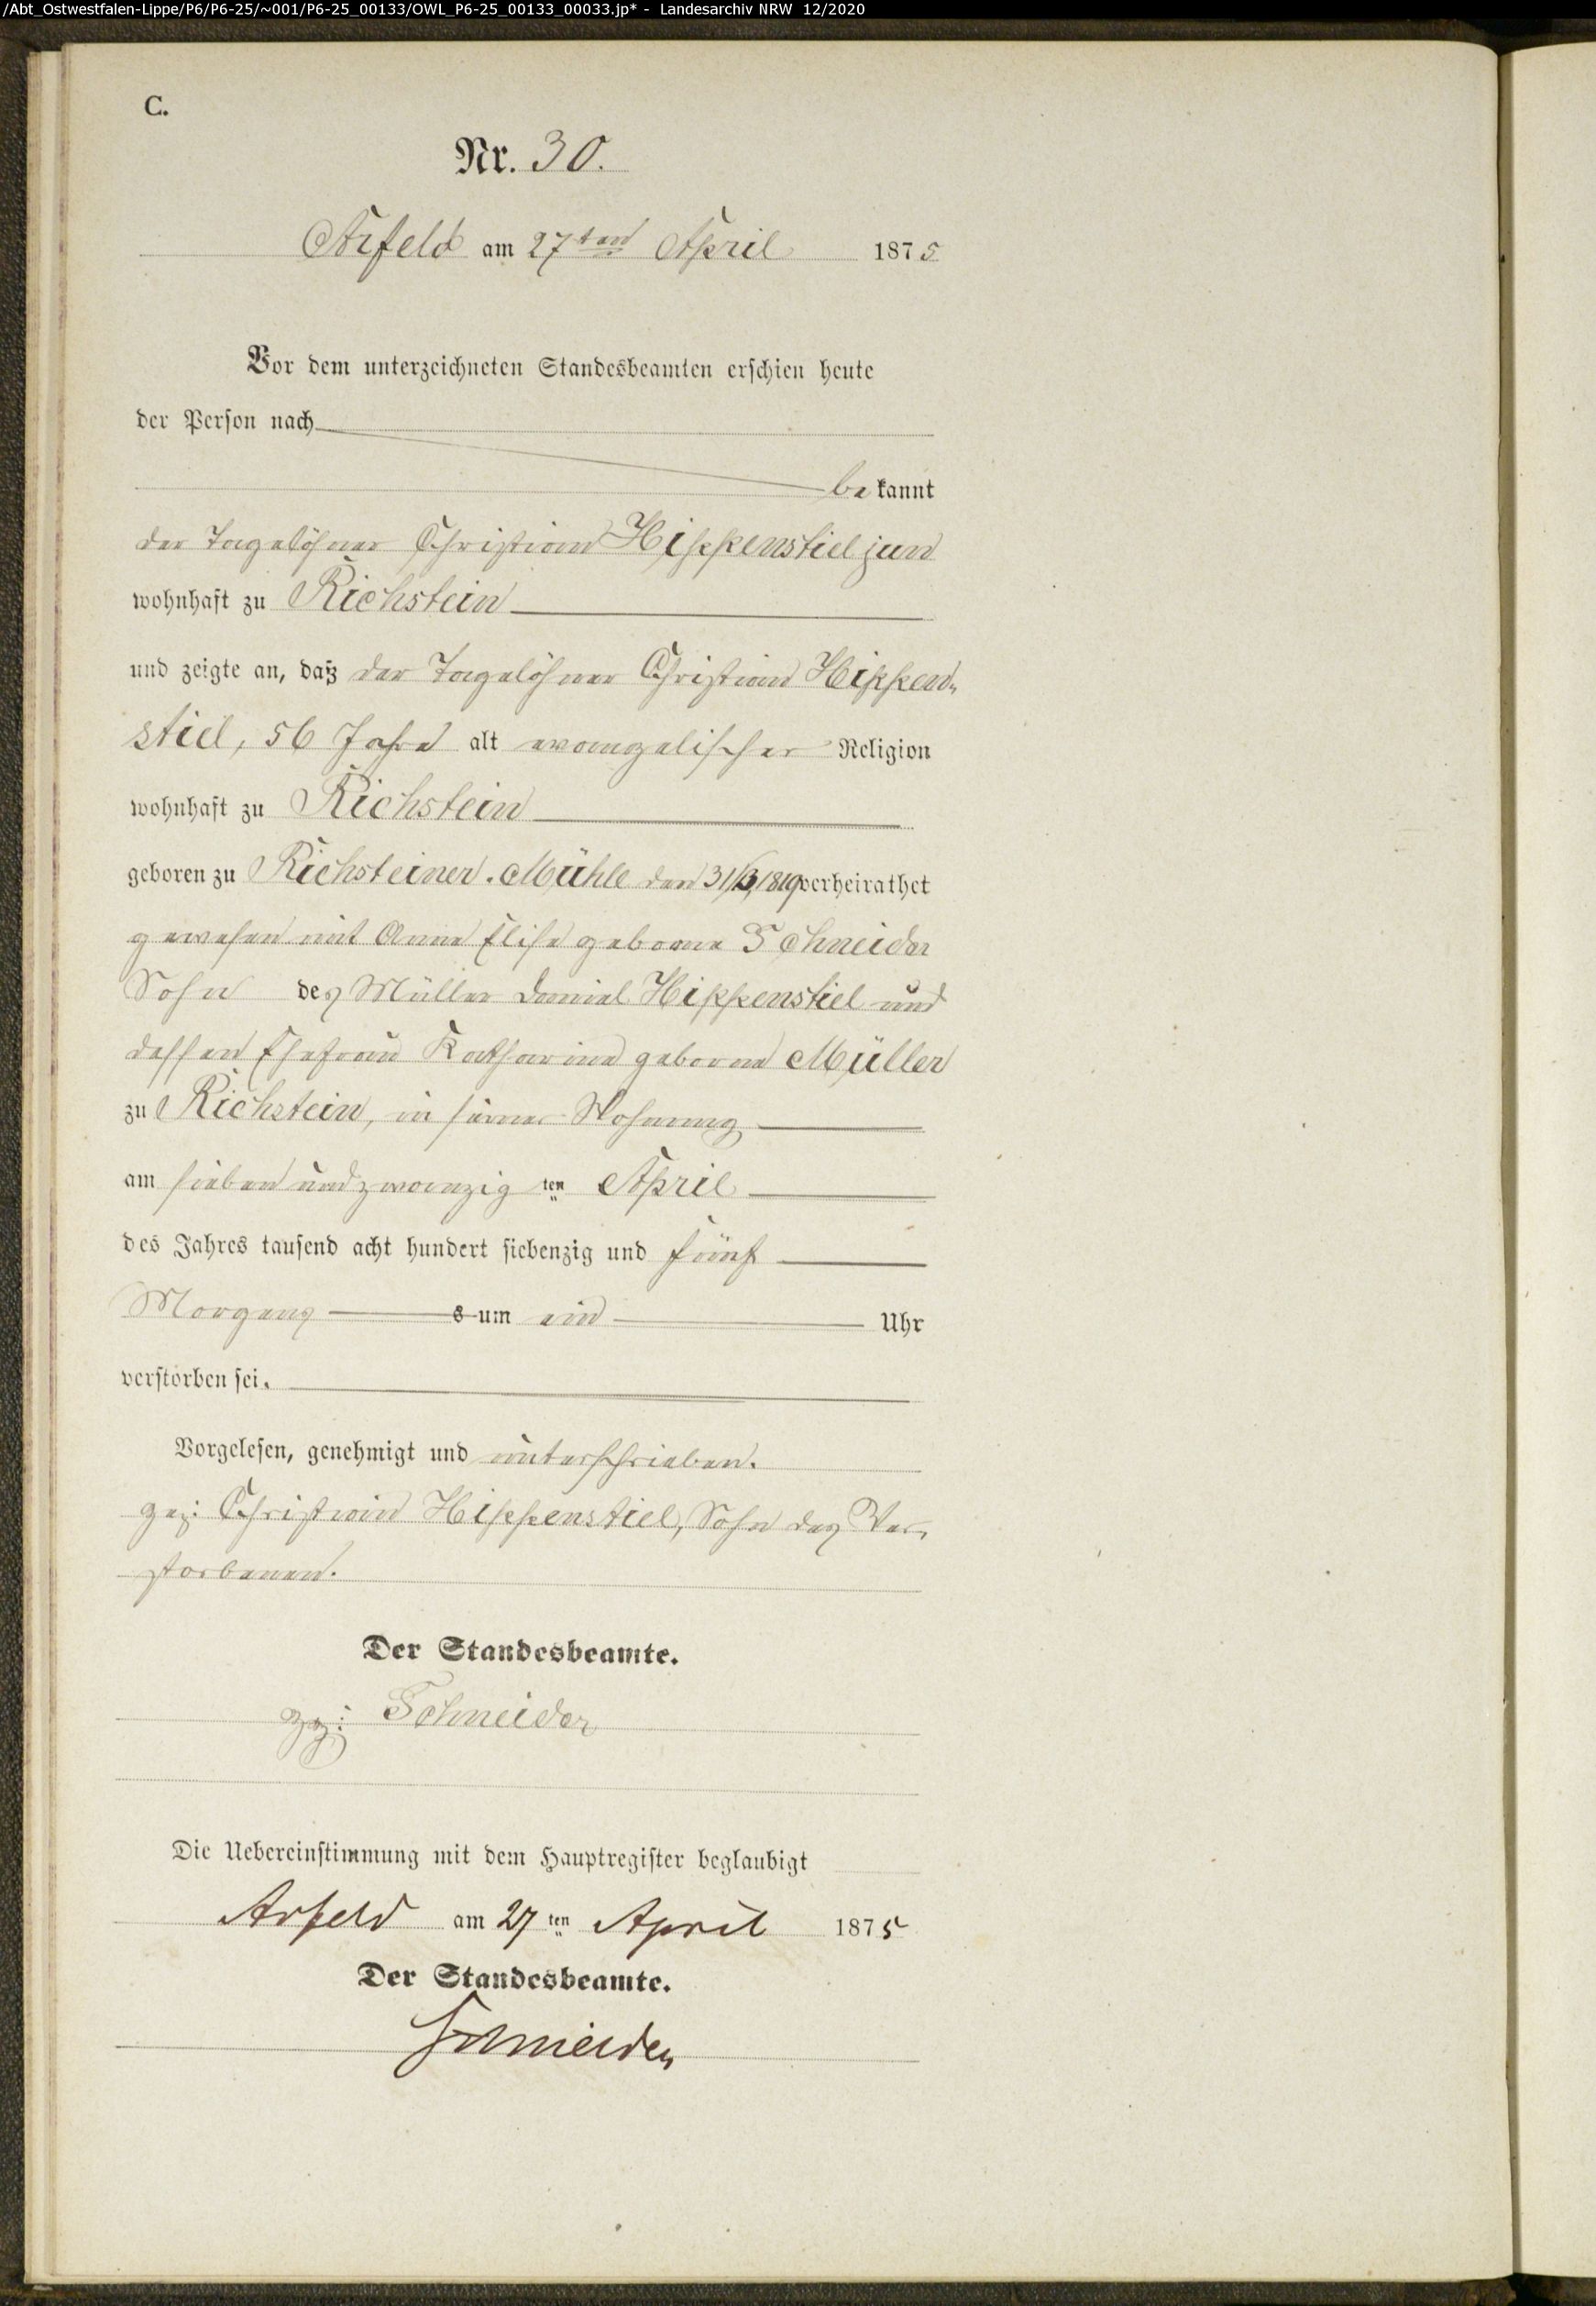 /Abt_Ostwestfalen-Lippe/P6/P6-25/~001/P6-25_00133/OWL_P6-25_00133_00033.jp* - Landesarchiv NRW 12/2020
C.
Nr. 30.
Arfeld am 27ten April 1875
Vor dem unterzeichneten Standesbeamten erschien heute
der Person nach
bekannt
der Tagelöhner Christian Hippenstiel jun
wohnhaft zu Richstein
und zeigte an, daß der Tagelöhner Christian Hippen-
stiel, 56 Jahre alt evangelischer Religion
wohnhaft zu Richstein
geboren zu Richsteiner-Mühle den 31/3 1819 verheirathet
gewesen mit Anna Elise geborne Schneider
Sohn des Müller Daniel Hippenstiel und
dessen Ehefrau Katharine geborne Müller
zu Richstein, in seiner Wohnung
am sieben und zwanzig ten April
des Jahres tausend acht hundert siebenzig und fünf
Morgens s um ein Uhr
verstorben sei.
Vorgelesen, genehmigt und unterschrieben.
gez: Christian Hippenstiel, Sohn des Ver-
storbenen.
Der Standesbeamte.
gez: Schneider
Die Uebereinstimmung mit dem Hauptregister beglaubigt
Arfeld am 27 ten April 1875
Der Standesbeamte.
Schneider